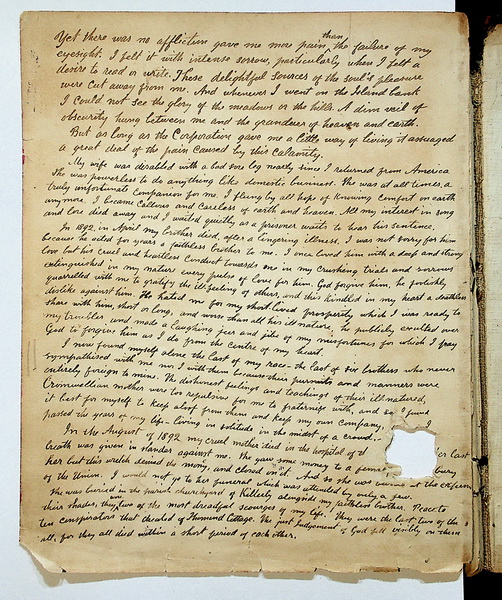 Yet there was no affliction gave me more pain than the failure of my
eyesight. I felt it with intense sorrow, particularly when I felt a
desire to read or write. These delightful sources of the soul's pleasure
were cut away from me. And whenever I went on the Island bank
I could not see the glory of the meadows or the hills. A dim veil of
obscurity hung between me and the grandeur of heaven and earth.
But as long as the Corporation gave me a little way of living it assuaged
a great deal of the pain caused by this calamity.
My wife was disabled with a bad sore leg nearly since I returned from America
She was powerless to do anything like domestic business. She was at all times, a
truly unfortunate companion for me. I flung by all hope of knowing comfort on earth
anymore. I became callous and careless of earth and heaven. All my interest in song
and lore died away and I waited quietly as a prisoner waits to hear his sentence.
In 1892, in April my brother died, after a lingering illness. I was not sorry for him
because he acted for years a faithless brother to me. I once loved him with a deep and strong
love but his cruel and heartless conduct towards me in my crushing trials and sorrows
extinguished in my nature every pulse of love for him. God forgive him, he foolishly
quarrelled with me to gratify the ill feeling of others, and this kindled in my heart a deathless
dislike against him. He hated me for my short lived prosperity which I was ready to
share with him, short or long, and worse than all his ill nature, he publicly exulted over
my troubles and made a laughing jeer and jibe of my misfortunes for which I pray
God to forgive him as I do from the centre of my heart.
I now found myself alone the last of my race - the last of six brothers who never
sympathised with me nor I with them because their pursuits and manners were
entirely foreign to mine. The dishonest feelings and teaching of their ill natured,
Cromwellian mother were too repulsive for me to fraternise with, and so I found
it best for myself to keep aloof from them and keep my own company. I
passed the years of my life - living in solitude in the midst of a crowd.
In the August of 1892 my cruel mother died in the hospital of
her last
breath was given in slander against me. She gave some money to a
her but this wretch denied the money, and closed on it. And so she was at the expense
of the Union. I would not go to her funeral which was attended by only a few.
She was buried in the parish churchyard of Killely alongside my faithless brother. Peace to
their shades, they were two of the most dreadful scourges of my life. They were the last two of the
ten conspirators that of Thomond Cottage. The just Judgement of God fell visibly on them
all, for they all died within a short period of each other.